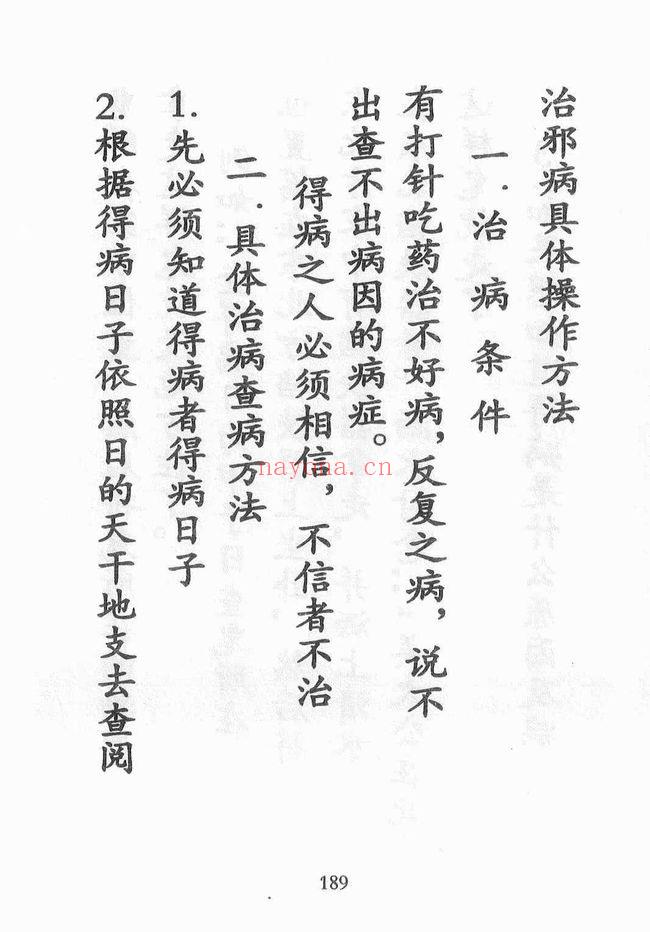 治邪病具体操作方法
一.治病条件
有打针吃药治不好病，反复之病，说不
出查不出病因的病症。
得病之人必须相信，不信者不治
二.具体治病查病方法
1.先必须知道得病者得病日子
2.根据得病日子依照日的天干地支去查阅
nayona.cn
189